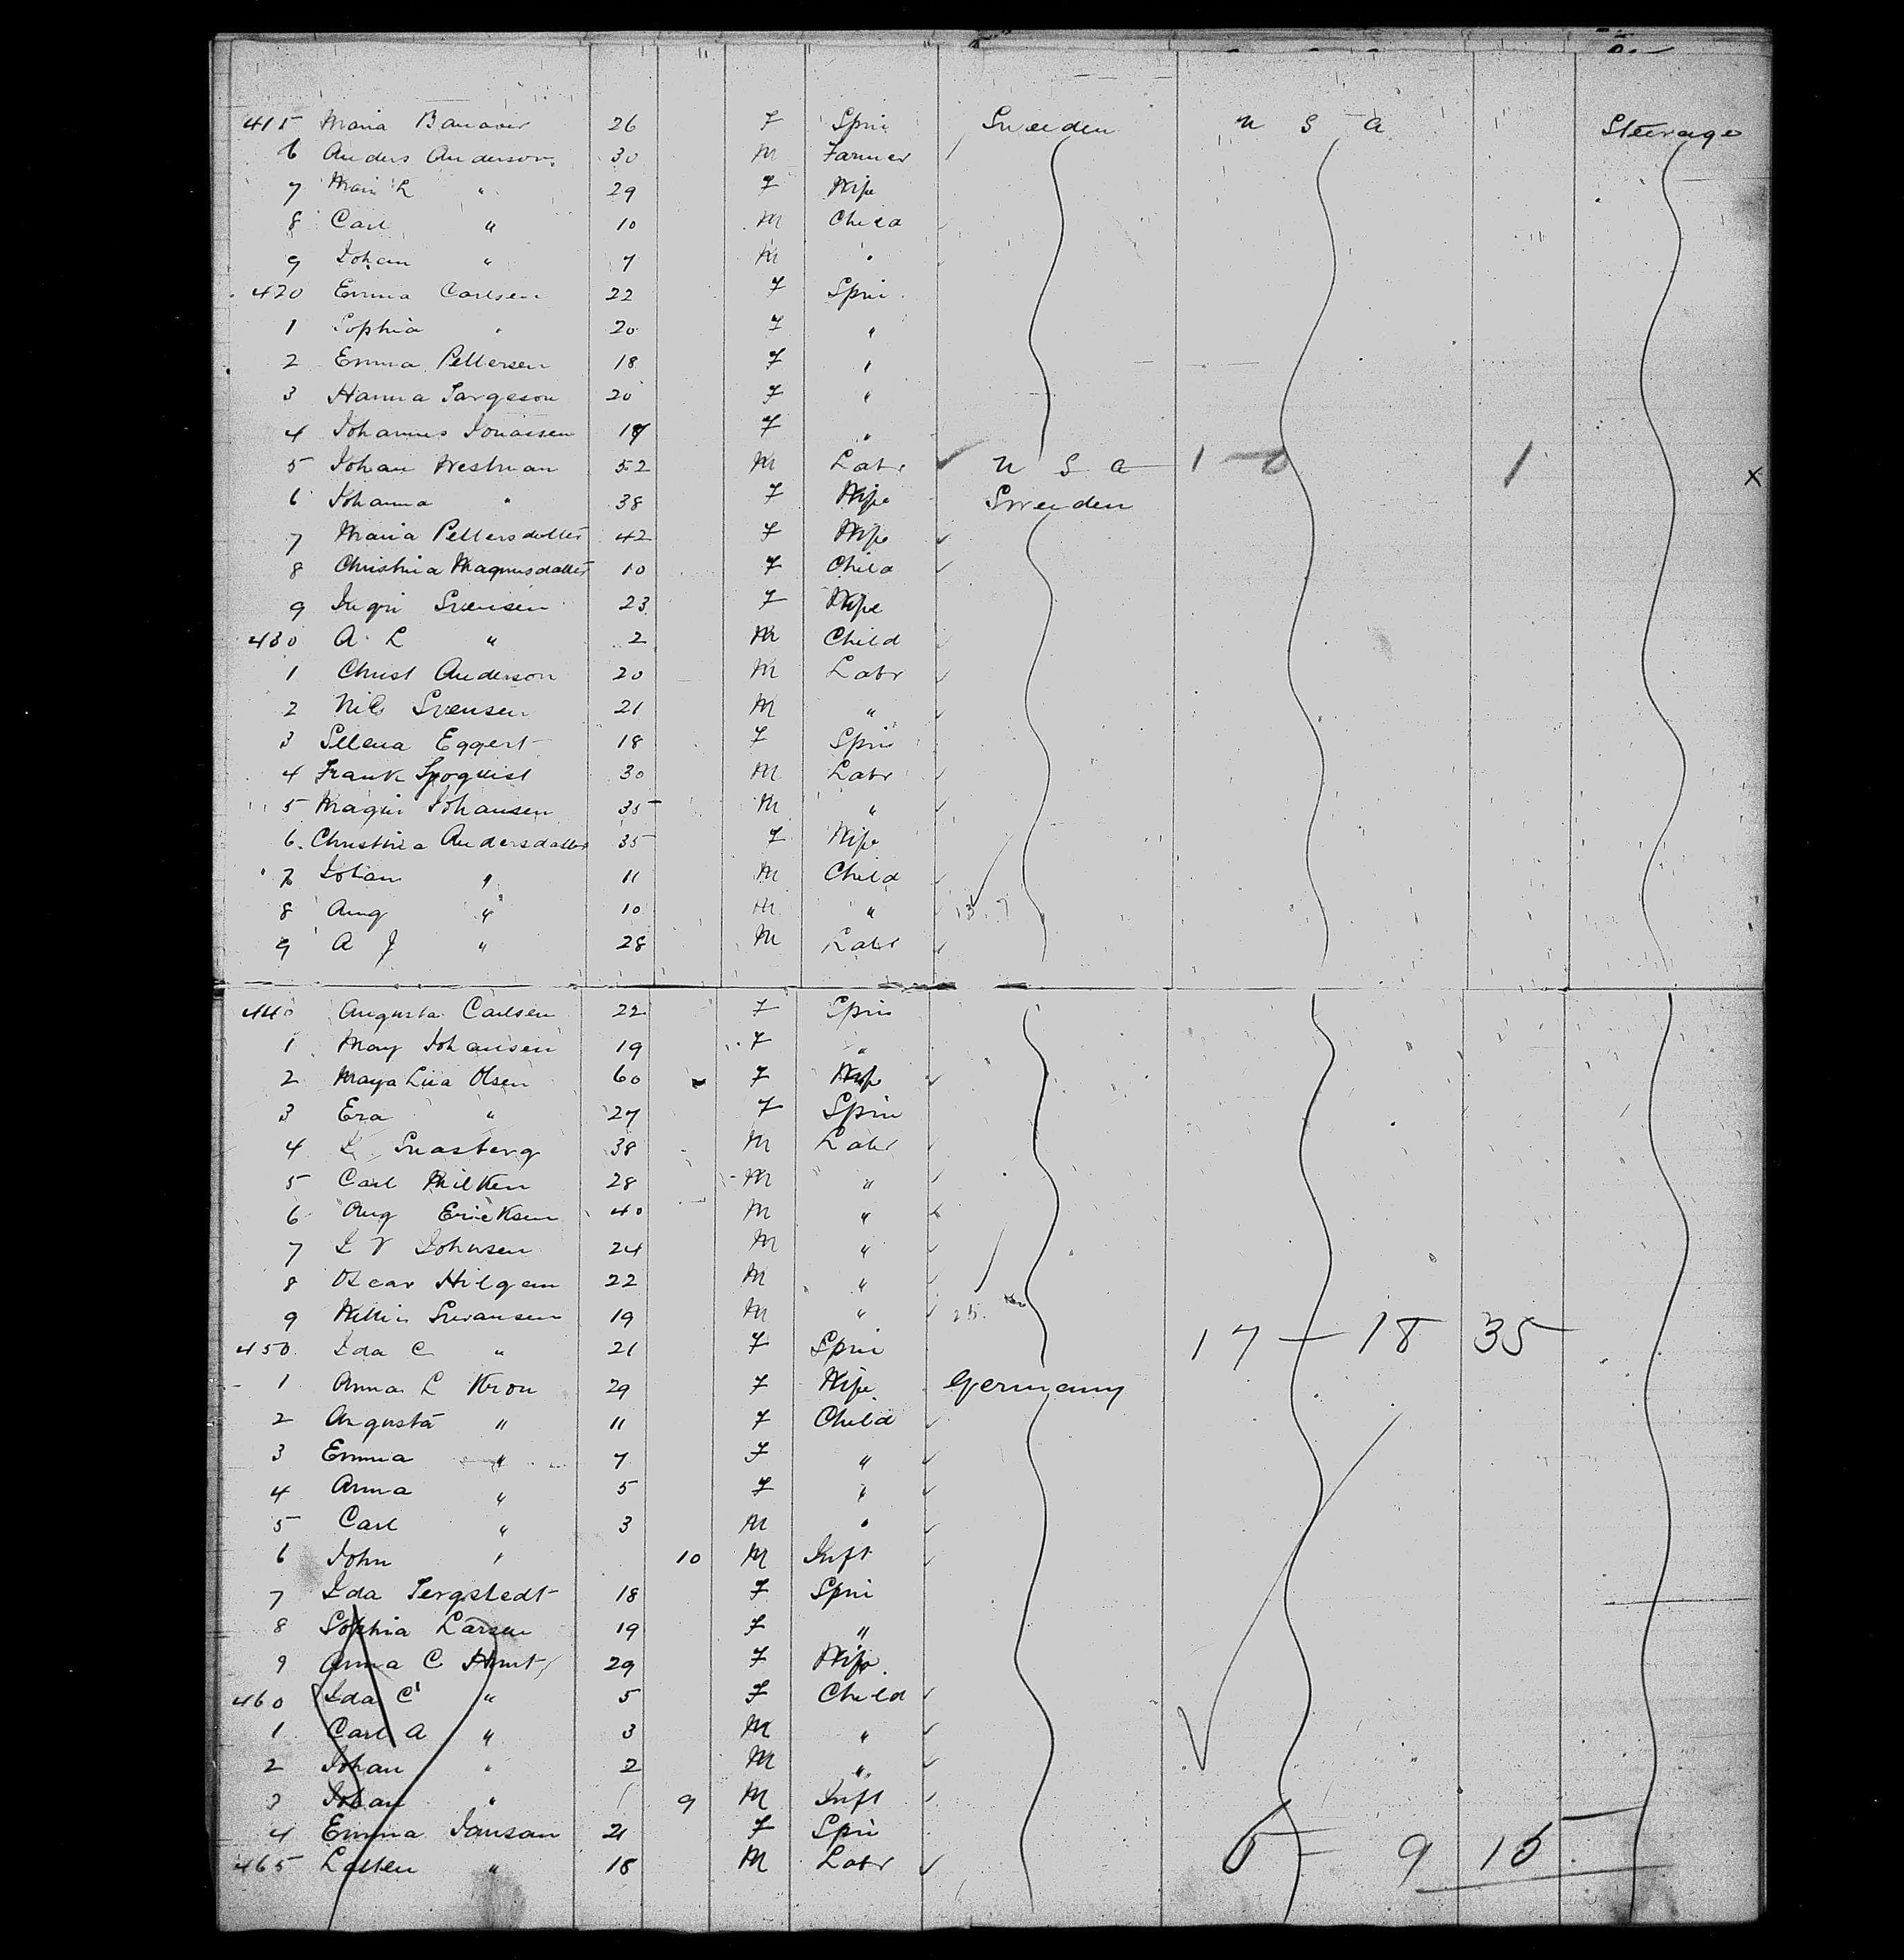 415 Maria Banover 26 F Spin Sweden U S A Steerage
6 Anders Anderson 30 M Farmer
7 Mari L " 29 F Wife
8 Carl " 10 M Child
9 Johan " 7 M "
420 Emma Carlsen 22 F Spin
1 Sophia " 20 F "
2 Emma Pettersen 18 F "
3 Hanna Torgeson 20 F "
4 Johannes Jonassen F "
5 Johan Westman 52 M Labr U S A 1 - 0 1 X
6 Johanna " 38 F Wife Sweden
7 Maria Pettersdotter 42 F Wife
8 Christina Magnusdotter 10 F Child
9 Ingri Svensen 23 F Wife
430 A L " 2 M Child
1 Christ Anderson 20 M Labr
2 Nils Svensen 21 M "
3 Ellena Eggert 18 F Spin
4 Frank 30 M Labr
5 Magni Johansen 35 M "
6 Christina Andersdatter 35 F Wife
7 Johan " 11 M Child
8 Aug " 10 M "
9 A J " 28 M Labr
440 Augusta Carlsen 22 F Spin
1 May Johansen 19 F "
2 Maya Lisa Olsen 60 F Wife
3 Eva " 27 F Spin
4 38 M Labr
5 Carl Wilken 28 M "
6 Aug Ericksen 40 M "
7 Johnsen 24 M "
8 Oscar Hilgen 22 M "
9 Swansen 19 M " 25
450 Ida C " 21 F Spin 17 - 18 35
1 Anna L Kron 29 F Wife Germany
2 Augusta " 11 F Child
3 Emma " 7 F "
4 Anna " 5 F "
5 Carl " 3 M "
6 John " 10 M Inft
7 Ida Tergstedt 18 F Spin
8 Sophia Larsen 19 F "
9 Anna C Hunt 29 F Wife
460 Ida C " 5 F Child
1 Carl A " 3 M "
2 Johan " 2 M "
3 Johan " 9 M Inft
4 Emma Jansan 21 F Spin
465 " 18 M Labr 6 - 9 15